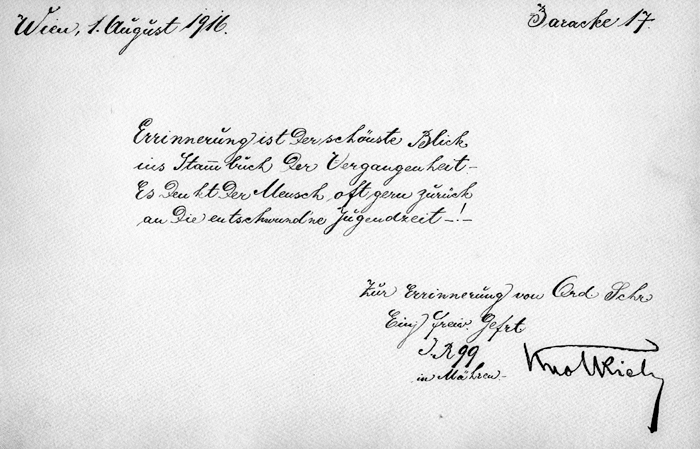 Wien, 1. August 1916.
Baracke 17.
Errinnerung ist der schönste Blick
ins Stam̄buch der Vergangenheit –
Es denkt der Mensch oft gern zurück
an die entschwund'ne Jugendzeit –!–
Zur Errinnerung von Ord Schr
Einj freiw. Gefrt
I. R 99
in Mähren –